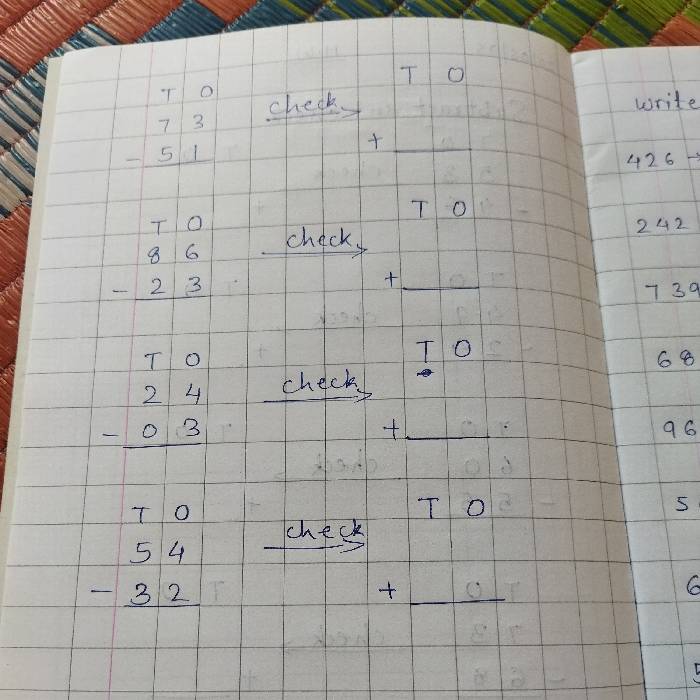 T O
T O
7 3 check
- 5 1 +
T O
T O
8 6 check
- 2 3 +
T O
T O
2 4 check
- 0 3 +
T O
T O
5 4 check
- 3 2 +
write
426 →
242
739
68
96
5
6
5